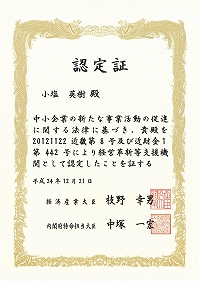 認定証
小塩 英樹 殿
中小企業の新たな事業活動の促進
に関する法律に基づき、貴殿を
20121122 近畿第 8 号及び近財金1
第 442 号により経営革新等支援機
関として認定したことを証する
平成24年12月21日
経済産業大臣 枝野 幸男
内閣府特命担当大臣 中塚 一宏